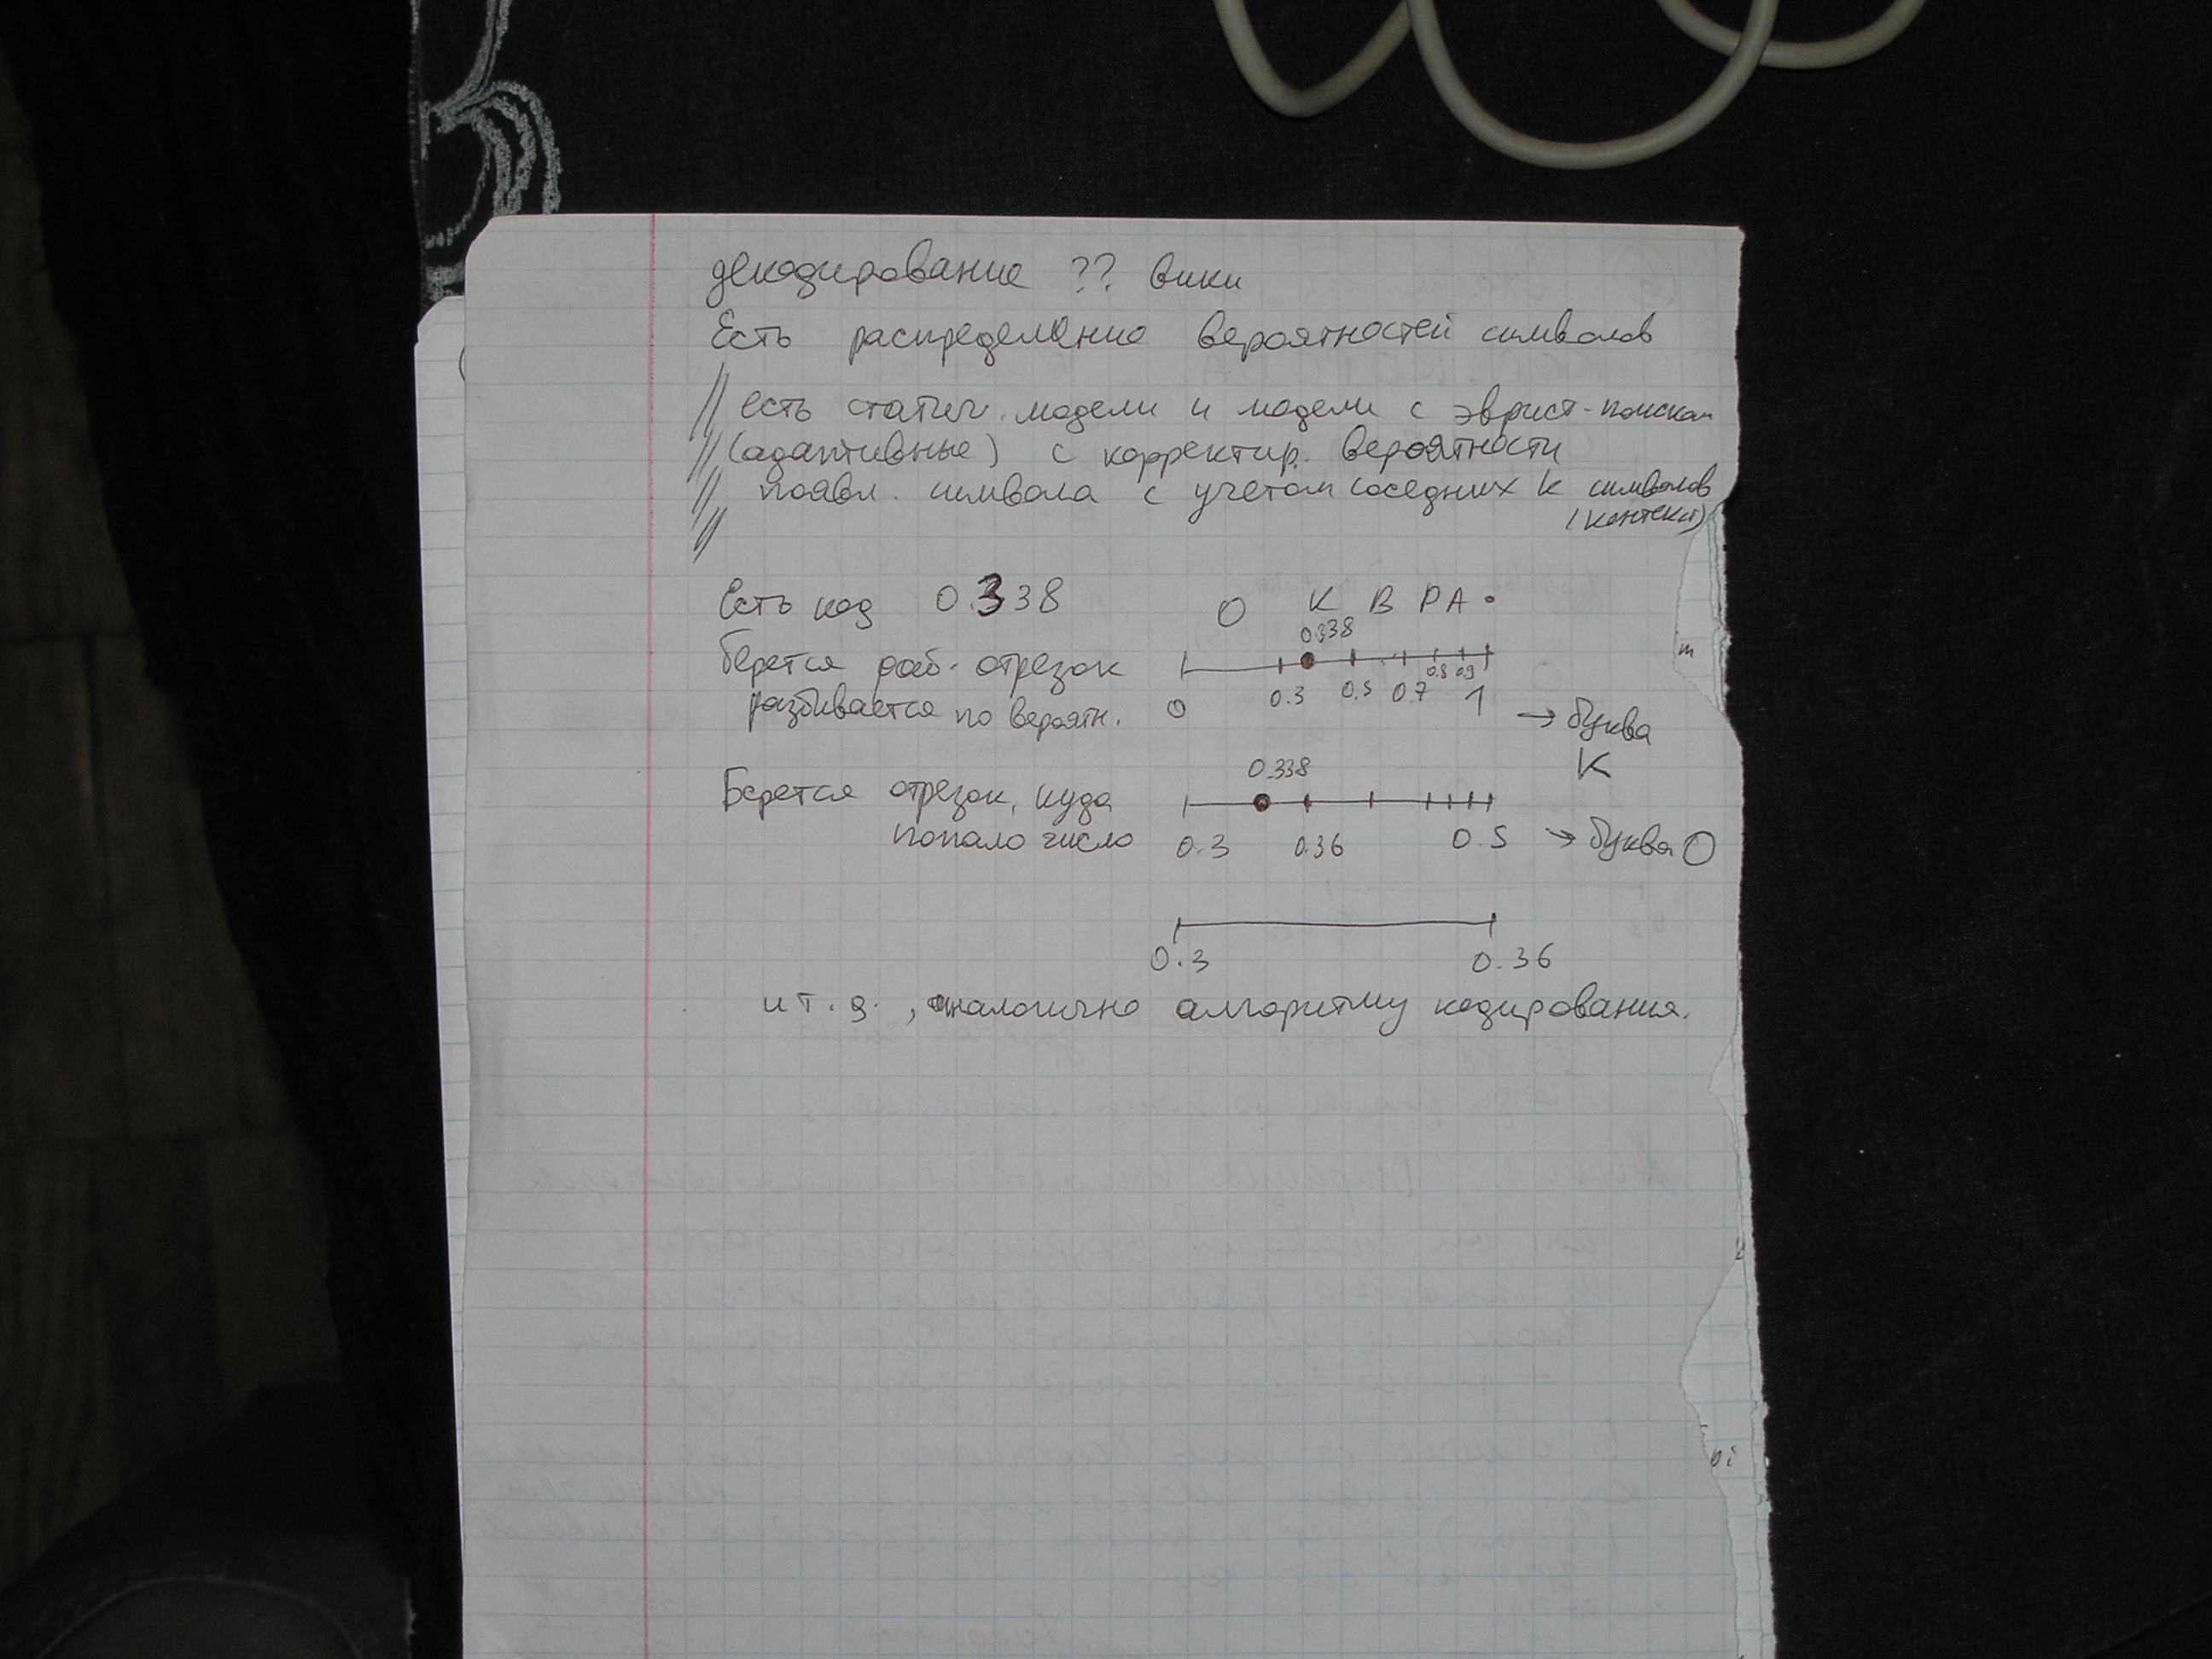 декодирование ?? вики
Есть распределение вероятностей символов
есть статич. модели и модели с эврист-поиском
(адаптивные) с корректир. вероятности
появл. символа с учетом соседних k символов
(контекст)
Есть код 0.338
О К В Р А •
0.338
берется раб. отрезок
0.8 0.9
0 0.3 0.5 0.7 1
разбивается по вероятн.
→ буква
К
0.338
Берется отрезок, куда
попало число
0.3 0.36 0.5 → буква О
0.3 0.36
и т.д., аналогично алгоритму кодирования.